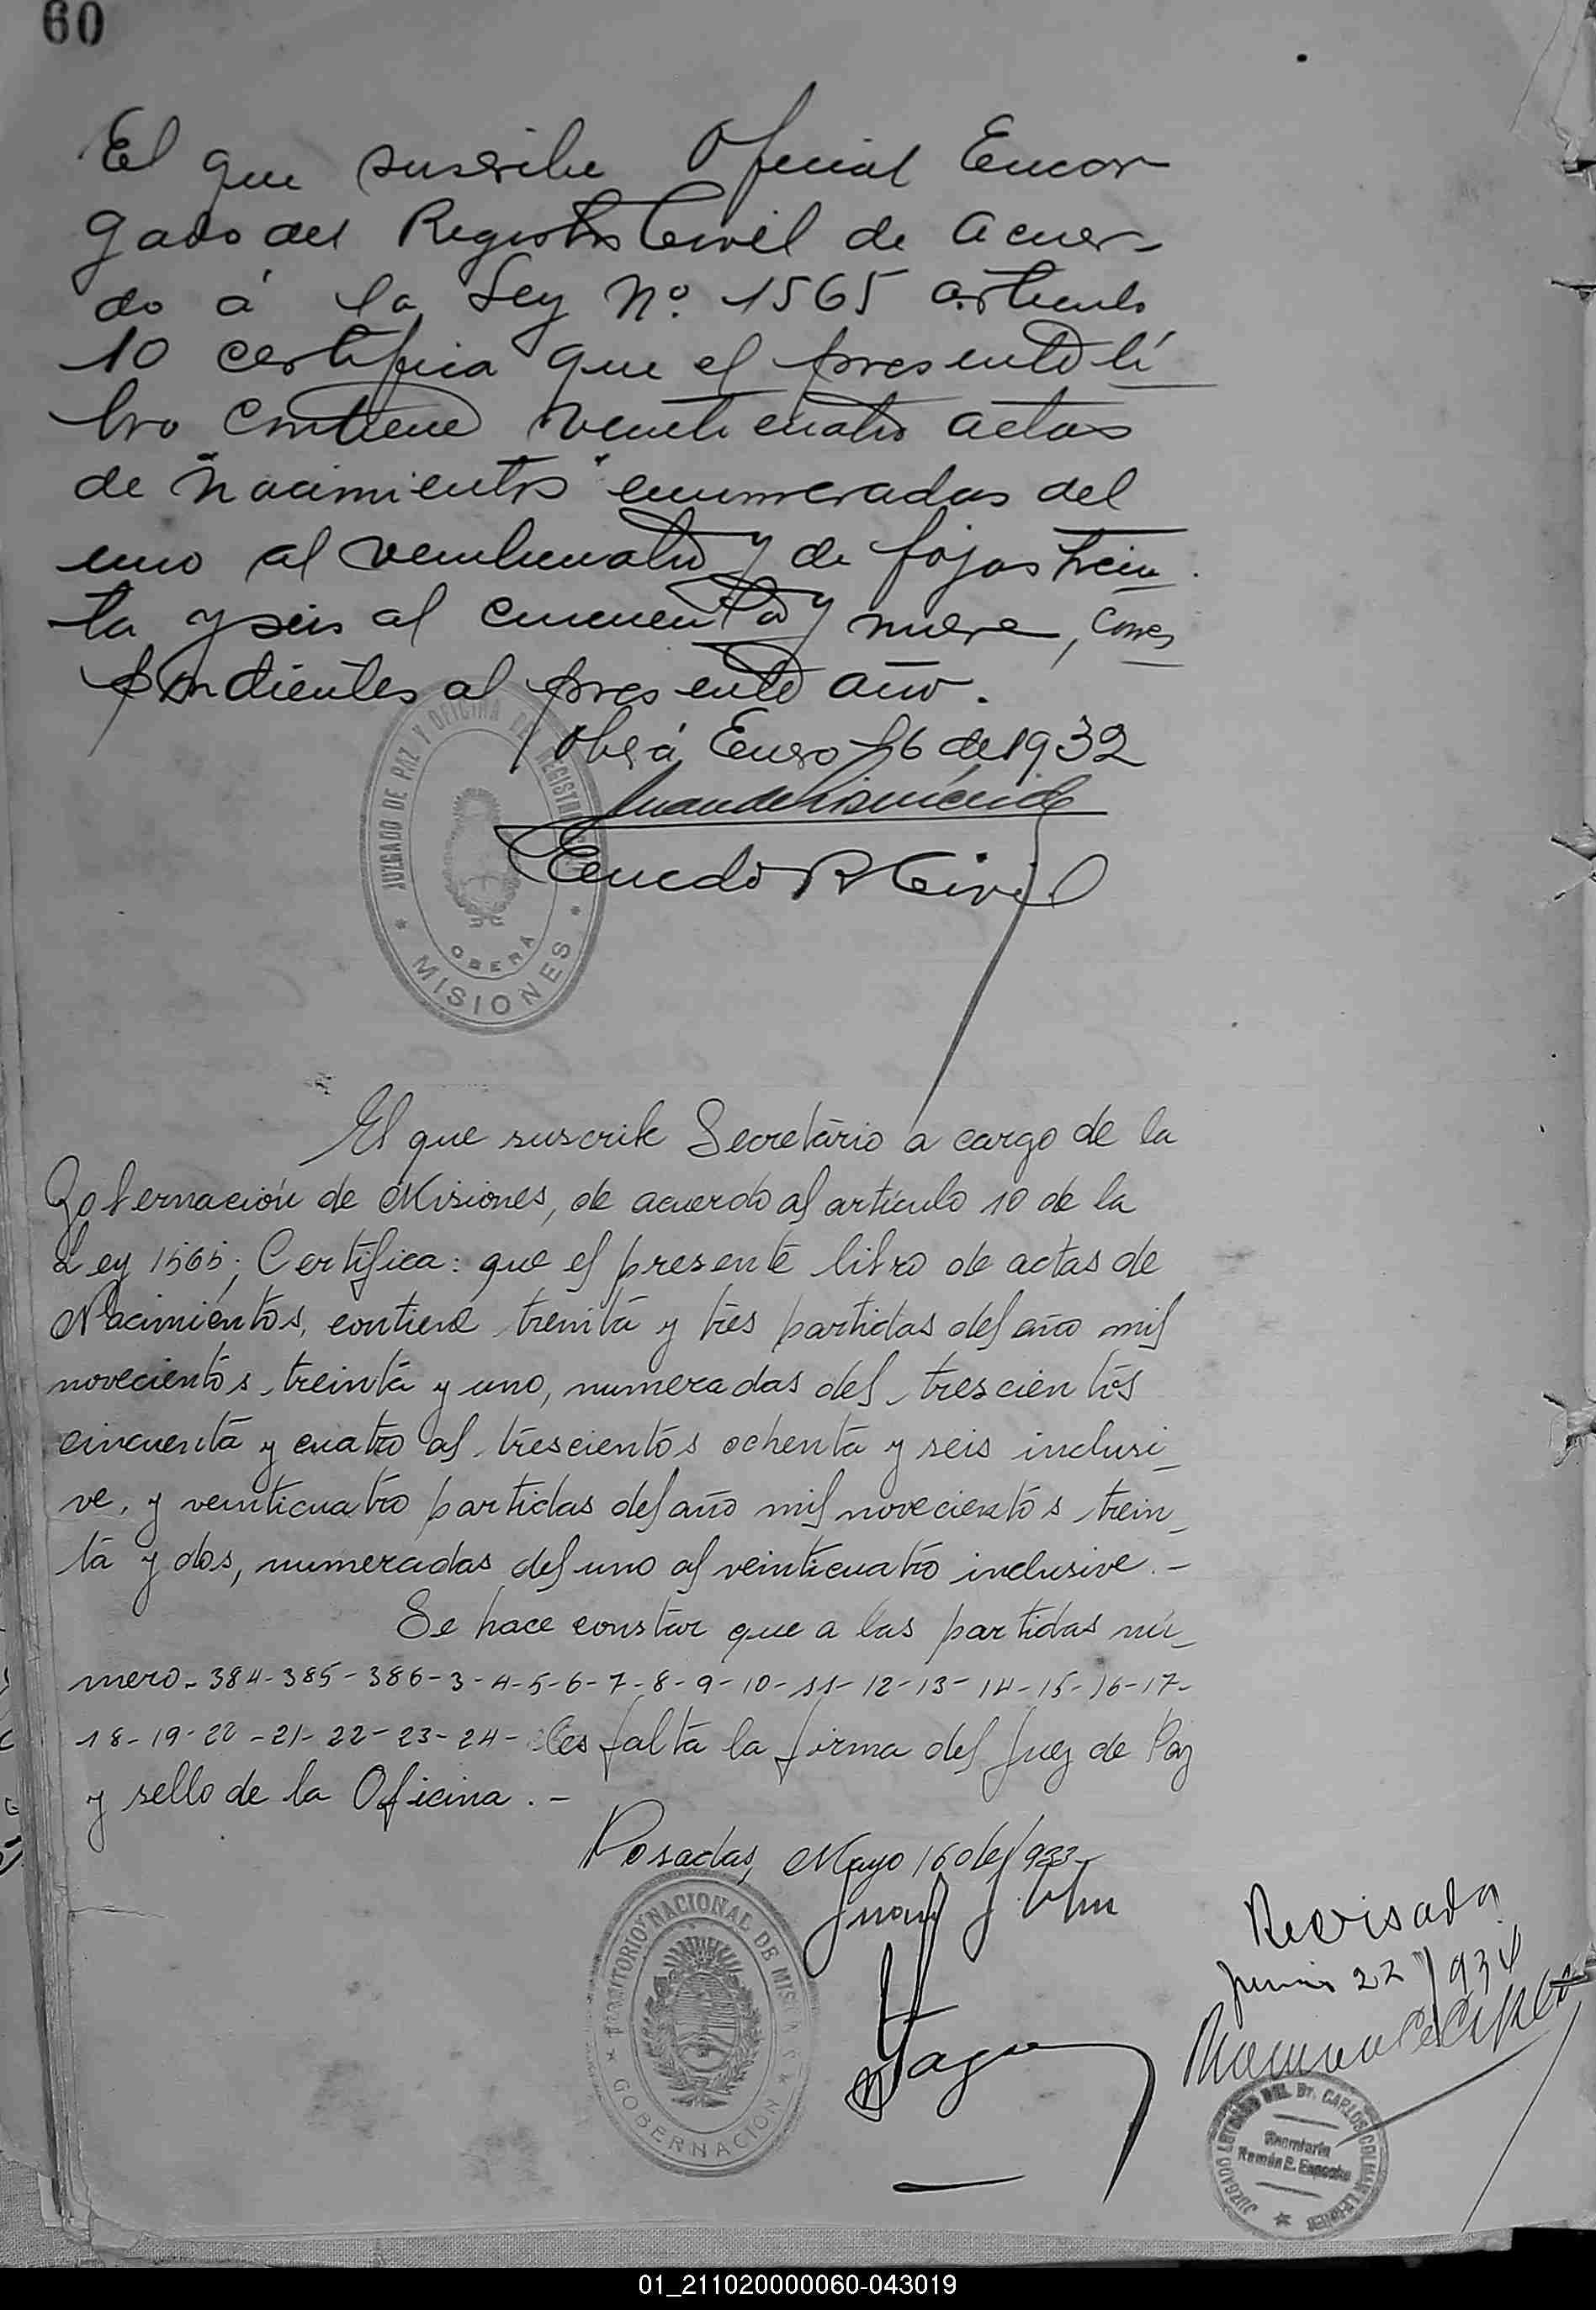 60
El que suscribe Oficial Encar
gado del Registro Civil de acuer-
do á la Ley Nº. 1565 articulo
10 certifica que el presente li
bro contiene veinti cuatro actas
de "Nacimientos" enumeradas del
uno al veinticuatro y de fojas trein
ta y seis al cincuenta y nueve, corres
pondientes al presente año.
Oberá Enero 16 de 1932
Encdo R Civil
JUZGADO DE PAZ Y OFICINA DE REGISTRO
OBERÁ
* MISIONES *
El que suscribe Secretario a cargo de la
Gobernación de Misiones, de acuerdo al artículo 10 de la
Ley 1565; Certifica: que el presente libro de actas de
Nacimientos, contiene treinta y tres partidas del año mil
novecientos treinta y uno, numeradas del trescientos
cincuenta y cuatro al trescientos ochenta y seis inclusi_
ve, y veinticuatro partidas del año mil novecientos trein_
ta y dos, numeradas del uno al veinticuatro inclusive.-
Se hace constar que a las partidas nú_
mero-384-385-386-3-4-5-6-7-8-9-10-11-12-13-14-15-16-17-
18-19-20-21-22-23-24- les falta la firma del Juez de Paz
y sello de la Oficina.-
Posadas, Mayo 16 de 1933
TERRITORIO NACIONAL DE MISIONES
* GOBERNACION *
Revisada
Junio 22/934
JUZGADO LETRADO DEL Dr. CARLOS
Secretaría
Ramón E.
01_211020000060-043019